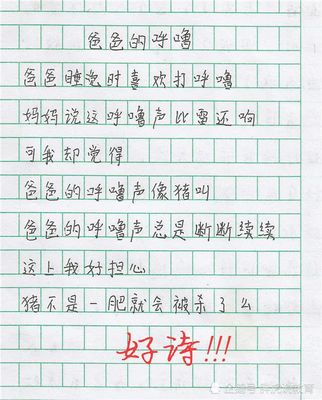 爸爸的呼噜
爸爸睡觉时喜欢打呼噜
妈妈说这呼噜声比雷还响
可我却觉得
爸爸的呼噜声像猪叫
爸爸的呼噜声总是断断续续
这上我好担心
猪不是一肥就会被杀了么
好诗!!!